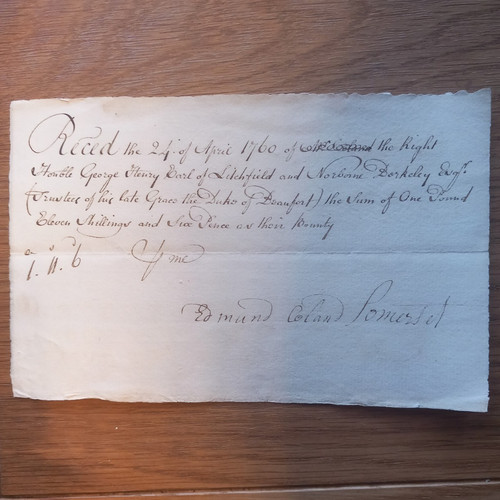 Reced the 24th of April 1760 of the Right
Honoble George Henry Earl of Litchfield and Norborne Berkeley Esqr.
(Trustees of his late Grace the Duke of Beaufort) the Sum of One Pound
Eleven Shillings and Six Pence as their Bounty
1. 11. 6 me
Edmund Coland Somerset